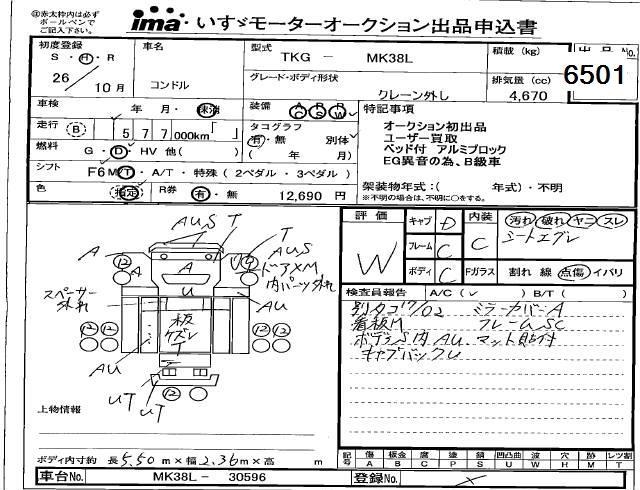 ◎赤太枠内は必ず
ボールペンで
ご記入下さい。
ima いすゞモーターオークション出品申込書
初度登録
S ・ H ・ R
26 / 10 月
車名
コンドル
型式
TKG － MK38L
グレード・ボディ形状
クレーン外し
積載 (kg)
排気量 (cc)
4,670
6501
車検 年 月・抹消
装備 AC PS PW
特記事項
オークション初出品
ユーザー買取
ベッド付 アルミブロック
EG異音の為、B級車
走行 B 5 7 7 000km
タコグラフ
有・無 別体
( 年 月)
燃料 G ・ D ・ HV 他( )
シフト F6 M/T ・ A/T ・ 特殊 ( 2ペダル ・ 3ペダル )
色
R券 有 ・ 無 12,690 円
架装物年式：( 年式)・不明
※不明の場合は、不明に○をする。
評価
W
キャブ D
フレーム C
ボディ C
内装 C
汚れ 破れ ヤニ スレ
シートエグレ
Fガラス 割れ 線 点傷 イバリ
検査員報告 A/C ( ✓ ) B/T ( )
別タコ17/02 ミラーカバーA
看板M フレームSC
ボデーS内AU マット貼付
キャブバックU
AUS T
T
AUS
ドア×M
内パッツ外れ
A
A
U
AU
スペーサー
外れ
板
ケズレ
T
AU
UT
UT
⑫ ⑫ ⑫ ⑫ ⑫
上物情報
ボディ内寸約 長5.50 m × 幅2.36 m × 高 m
記号 傷A 板金B 腐C 塗P 錆S 凹凸曲U 波W 穴H 跡M レツ割T
車台No. MK38L － 30596
登録No.